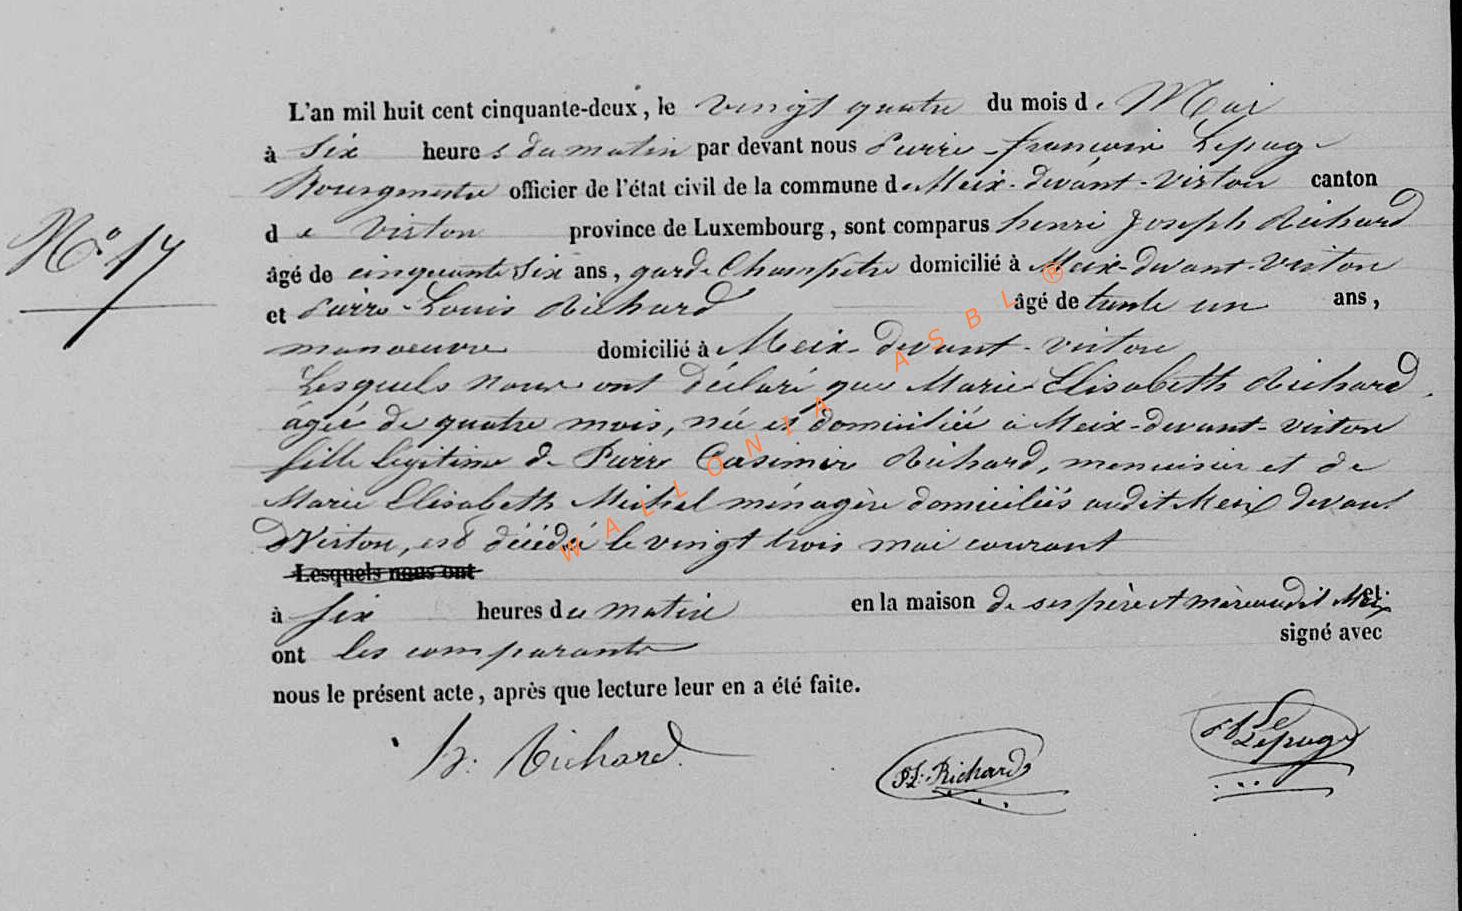 L'an mil huit cent cinquante-deux, le vingt quatre du mois de Mai
à six heures du matin par devant nous Pierre-françois Lepage
Bourgmestre officier de l'état civil de la commune de Meix-devant-Virton canton
de Virton province de Luxembourg, sont comparus henri Joseph Richard
N° 17
âgé de cinquante six ans, garde Champêtre domicilié à Meix-devant-Virton
et Pierre-Louis Richard âgé de trente un ans,
manoeuvre domicilié à Meix-devant-virton
Lesquels nous ont déclaré que Marie Elisabeth Richard,
âgée de quatre mois, née et domiciliée à Meix-devant-virton
fille légitime de Pierre Casimire Richard, menuisier et de
Marie Elisabeth Michel ménagère domiciliés audit Meix devant
Virton, est décédé le vingt trois mai courant
Lesquels nous ont
à six heures du matin en la maison de ses père et mère audit Meix et
ont les comparants signé avec
nous le présent acte, après que lecture leur en a été faite.
h. Richard
P.L. Richard
Lepage
WALLONIA ASBL ®